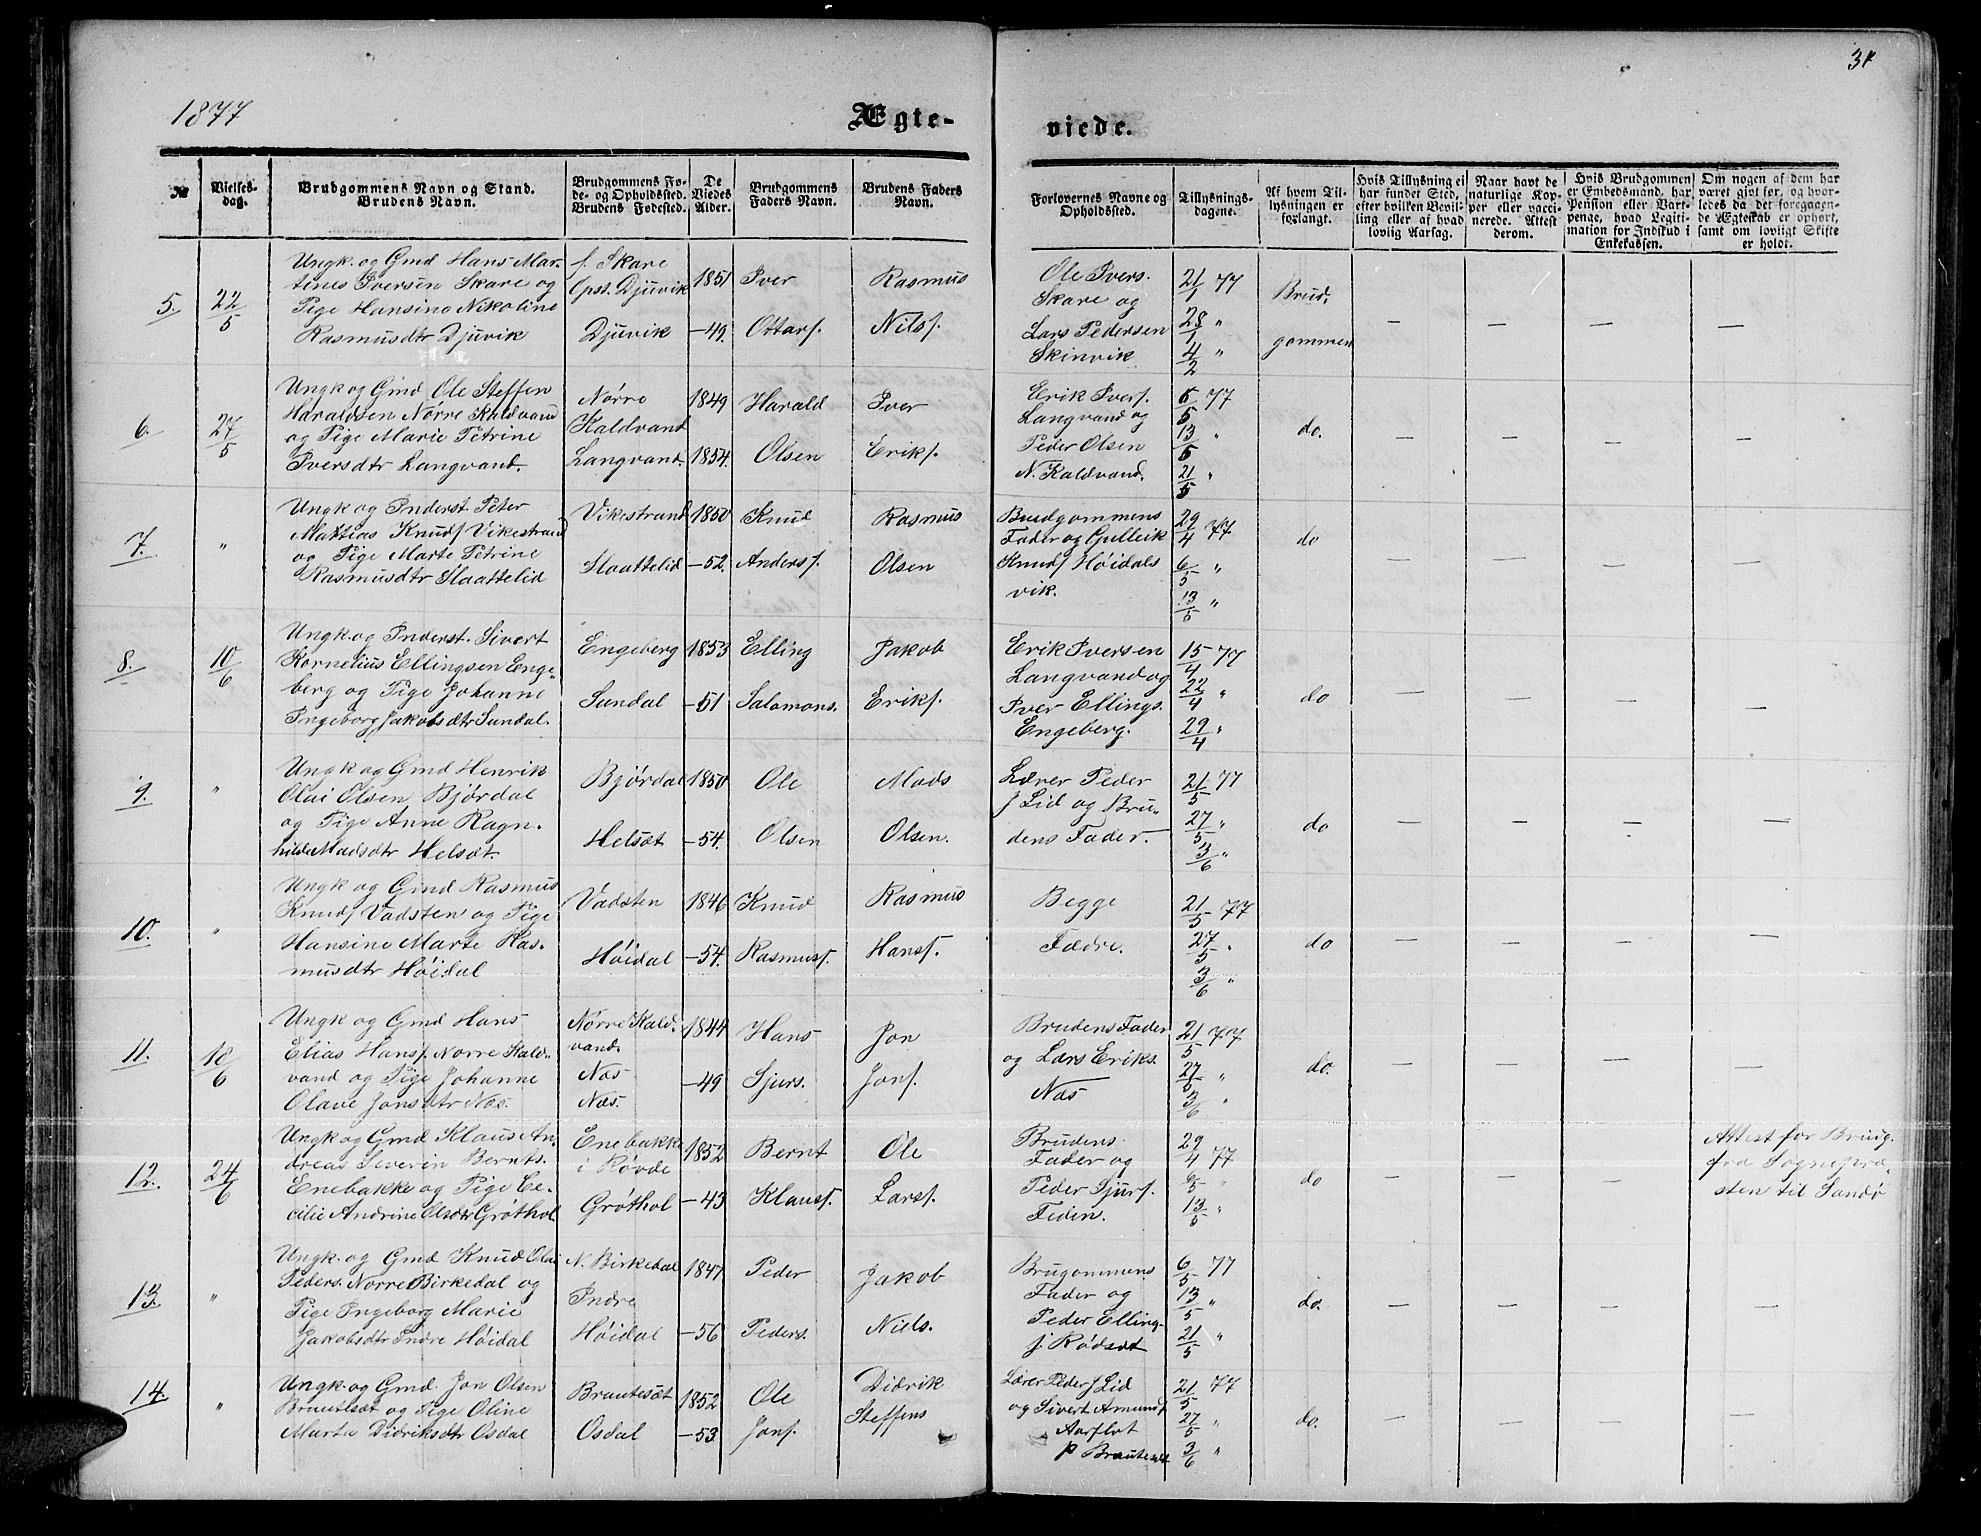 1877
Ægte-
viede.
31
№
Vielses-
dag.
Brudgommens Navn og Stand.
Brudens Navn.
Brudgommens Fø-
de- og Opholdssted.
Brudens Fødested.
De
Viedes
Alder.
Brudgommens
Faders Navn.
Brudens Faders
Navn.
Forlovernes Navne og
Opholdssted.
Tillysnings-
dagene.
Af hvem Til-
lysningen er
forlangt.
Hvis Tillysning ei
har fundet Sted,
efter hvilken Bevil-
ling eller af hvad
lovlig Aarsag.
Naar havt de
naturlige Kop-
per eller vacci-
nerede. Attest
derom.
Hvis Brudgommen
er Embedsmand, har
Pension eller Vart-
penge, hvad Legiti-
mation for Indskud i
Enkekassen.
Om nogen af dem har
været givt før, og hvor-
ledes da det foregaaen-
de Ægteskab er ophørt,
samt om lovligt Skifte
er holdt.
5. 22/5
Ungk. og Gmd Hans Mar-
tines Iversen Skare og
Pige Hansine Nikoline
Rasmusdtr Djuvik
f. Skare
Opst. Djuvik
Djuvik
1851
-49.
Iver
Ottars.
Rasmus
Nils.
Ole Ivers.
Skare og
Lars Pedersen
Skinvik
21/1 77
28/1 "
4/2 "
Brud.
gommen
— — — —
6. 27/5
Ungk og Gmd Ole Steffen
Haraldsen Nørre Kaldvand
og Pige Marie Petrine
Iversdtr Langvand.
Nørre
Kaldvand
Langvand.
1849
1854.
Harald
Olsen
Iver
Eriks.
Erik Ivers.
Langvand og
Peder Olsen
N. Kaldvand.
6/5 77
13/5 "
21/5 "
do.
— — — —
7. "
Ungk og Inderst Peter
Mattias Knuds Vikestrand
og Pige Marte Petrine
Rasmusdtr Slaattelid
Vikestrand
Slaattelid
1850
-52.
Knud
Anders.
Rasmus
Olsen
Brudgommens
Fader og Gulleik
Knuds Høidals
vik.
29/4 77
6/5 "
13/5 "
do
— — — —
8. 10/6
Ungk. og Inderst. Sivert
Kornelius Ellingsen Enge-
berg og Pige Johanne
Ingeborg Jakobsdtr Sundal.
Engeberg
Sundal
1853
-51
Elling
Salomons.
Jakob
Eriks.
Erik Iversen
Langvand og
Iver Ellings.
Engeberg.
15/4 77
22/4 "
29/4 "
do
— — — —
9. "
Ungk og Gmd Henrik
Olai Olsen Bjørdal
og Pige Anne Ragn-
hilde Madsdtr Helsæt.
Bjørdal
Helsæt
1850
-54.
Ole
Olsen
Mads
Olsen.
Lærer Peder
J Lid og Bru-
dens Fader.
21/5 77
27/5 "
3/6 "
do
— — — —
10. "
Ungk og Gmd Rasmus
Knuds Vadsten og Pige
Hansine Marte Ras-
musdtr Høidal
Vadsten
Høidal
1846
-54.
Knud
Rasmus.
Rasmus
Hans.
Begge
Fædre.
21/5 77
27/5 "
3/6 "
do
— — — —
11. 18/6
Ungk og Gmd Hans
Elias Hans. Nørre Kald-
vand og Pige Johanne
Olave Jonsdtr Næs.
Nørre Kald-
vand.
Næs
Næs.
1844
-49
Hans
Sjurs.
Jon
Jons.
Brudens Fader
og Lars Eriks.
Næs
21/5 77
27/5 "
3/6 "
do.
— — — —
12. 24/6
Ungk og Gmd Klaus An-
dreas Severin Bernts.
Enebakke og Pige Ce-
cilie Andrine Olsdtr Grøthol
Enebakke
i Røvde
Grøthol
1852
-43
Bernt
Klaus.
Ole
Lars.
Brudens
Fader og
Peder Sjurs.
Feden.
29/4 77
6/5 "
13/5
do
— — —
Attest for Brudg.
fra Sognepræ-
sten til Sandø
13. "
Ungk. og Gmd Knud Olai
Peders. Nørre Birkedal og
Pige Ingeborg Marie
Jakobsdtr Indre Høidal
N. Birkedal
Indre
Høidal
1847
-56
Peder
Peders.
Jakob
Niels.
Brugommens
Fader og
Peder Elling-
s. Rødsæt
6/5 77
13/5 "
21/5 "
do.
— — — —
14. "
Ungk. og Gmd. Jon Olsen
Brautesæt og Pige Oline
Marta Didriksdtr Osdal
Brautesæt
Osdal
1852
-53
Ole
Jons.
Didrik
Steffens
Lærer Peder J Lid
og Sivert Amunds
Aarflot
p Brautesæt
21/5 77
27/5 "
3/6 "
do.
— — — —